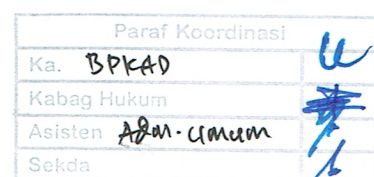 Paraf Koordinasi
Ka. BPKAD
Kabag Hukum
Asisten Adm. Umum
Sekda